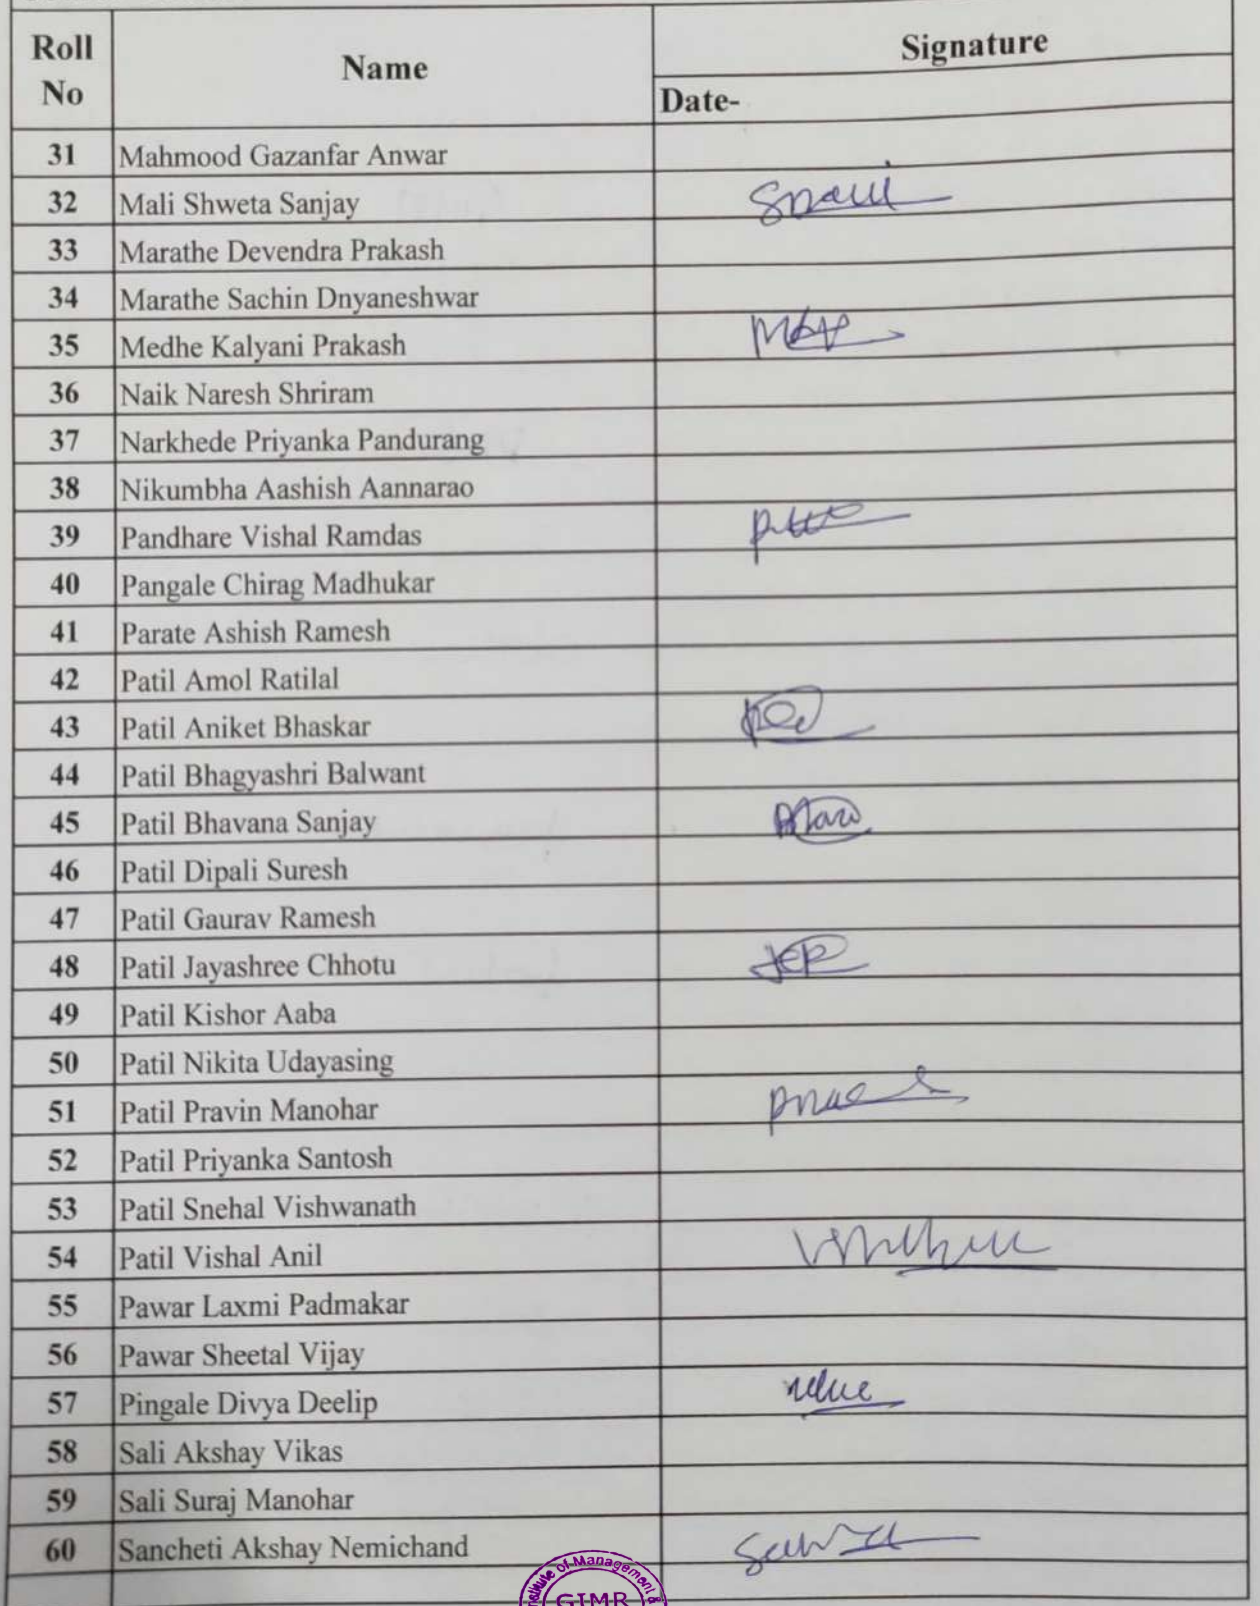 Roll No Name Signature
Date-
31 Mahmood Gazanfar Anwar
32 Mali Shweta Sanjay
33 Marathe Devendra Prakash
34 Marathe Sachin Dnyaneshwar
35 Medhe Kalyani Prakash
36 Naik Naresh Shriram
37 Narkhede Priyanka Pandurang
38 Nikumbha Aashish Aannarao
39 Pandhare Vishal Ramdas
40 Pangale Chirag Madhukar
41 Parate Ashish Ramesh
42 Patil Amol Ratilal
43 Patil Aniket Bhaskar
44 Patil Bhagyashri Balwant
45 Patil Bhavana Sanjay
46 Patil Dipali Suresh
47 Patil Gaurav Ramesh
48 Patil Jayashree Chhotu
49 Patil Kishor Aaba
50 Patil Nikita Udayasing
51 Patil Pravin Manohar
52 Patil Priyanka Santosh
53 Patil Snehal Vishwanath
54 Patil Vishal Anil
55 Pawar Laxmi Padmakar
56 Pawar Sheetal Vijay
57 Pingale Divya Deelip
58 Sali Akshay Vikas
59 Sali Suraj Manohar
60 Sancheti Akshay Nemichand
of Management &
GIMR